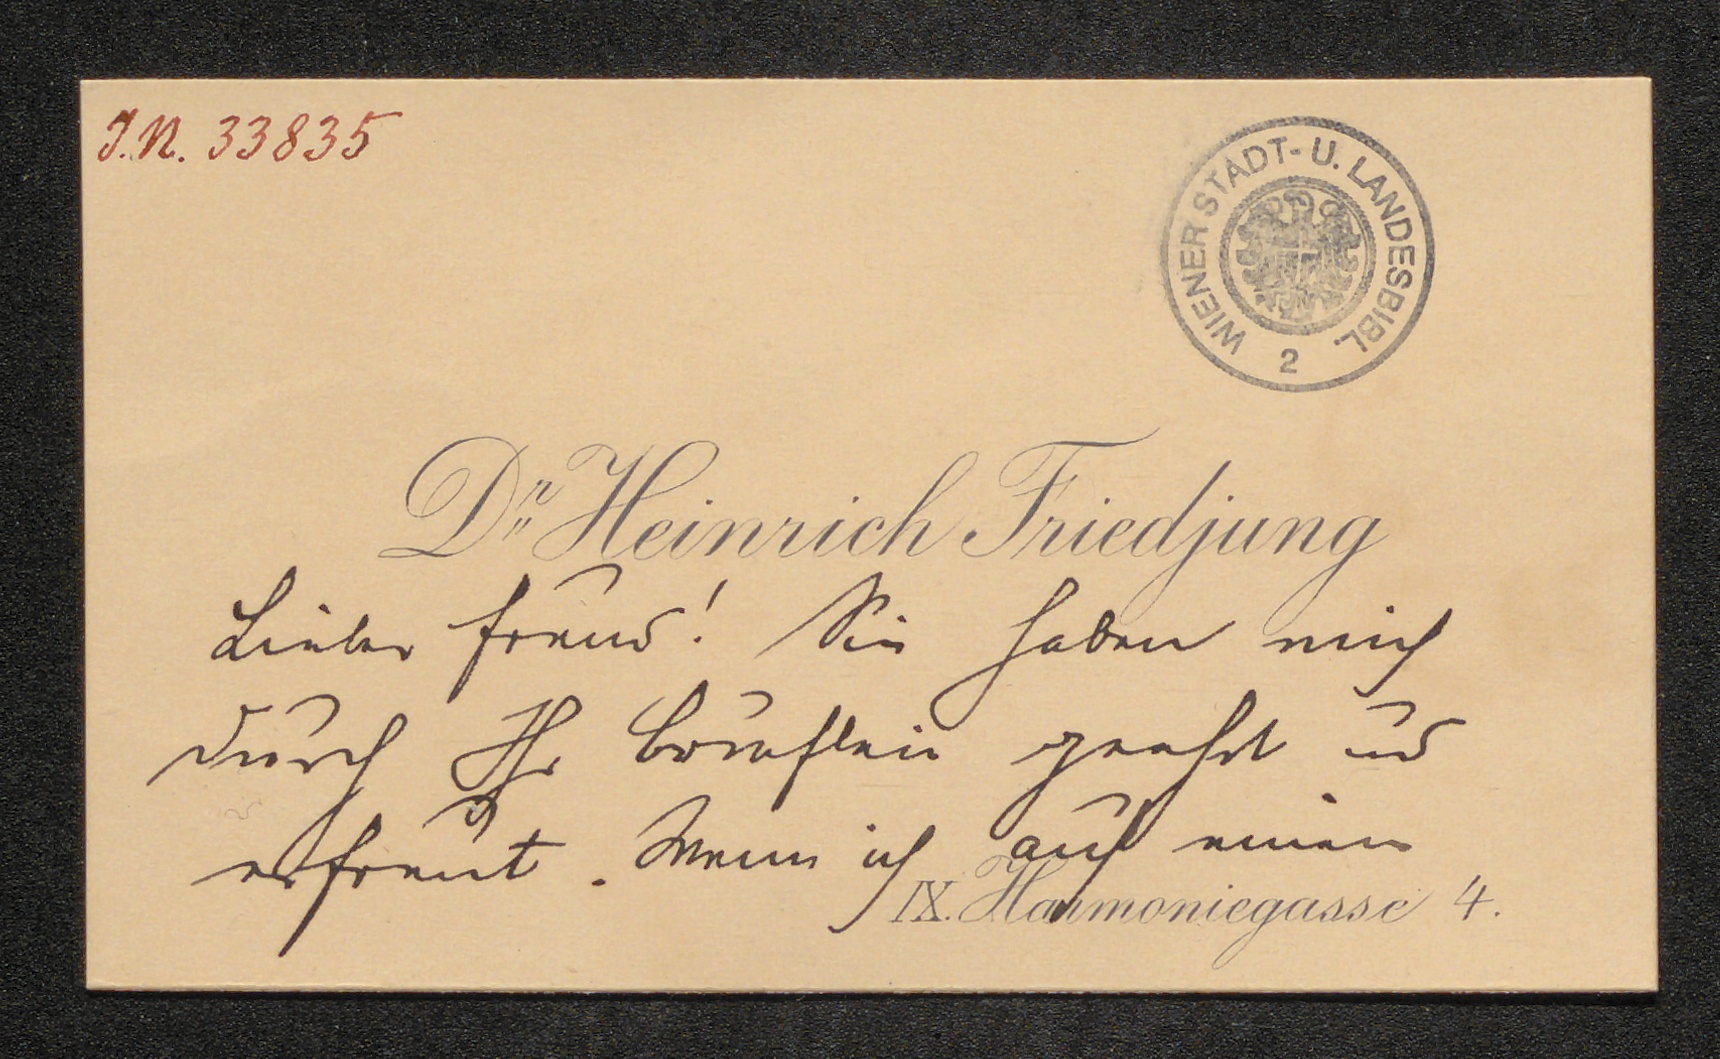 J.N. 33835
WIENER STADT- U. LANDESBIBL. 2
Dr. Heinrich Friedjung
Lieber Freund! Sie haben mich
durch Ihr Brieflein geehrt und
erfreut. Wenn ich auf einen
IX. Harmoniegasse 4.